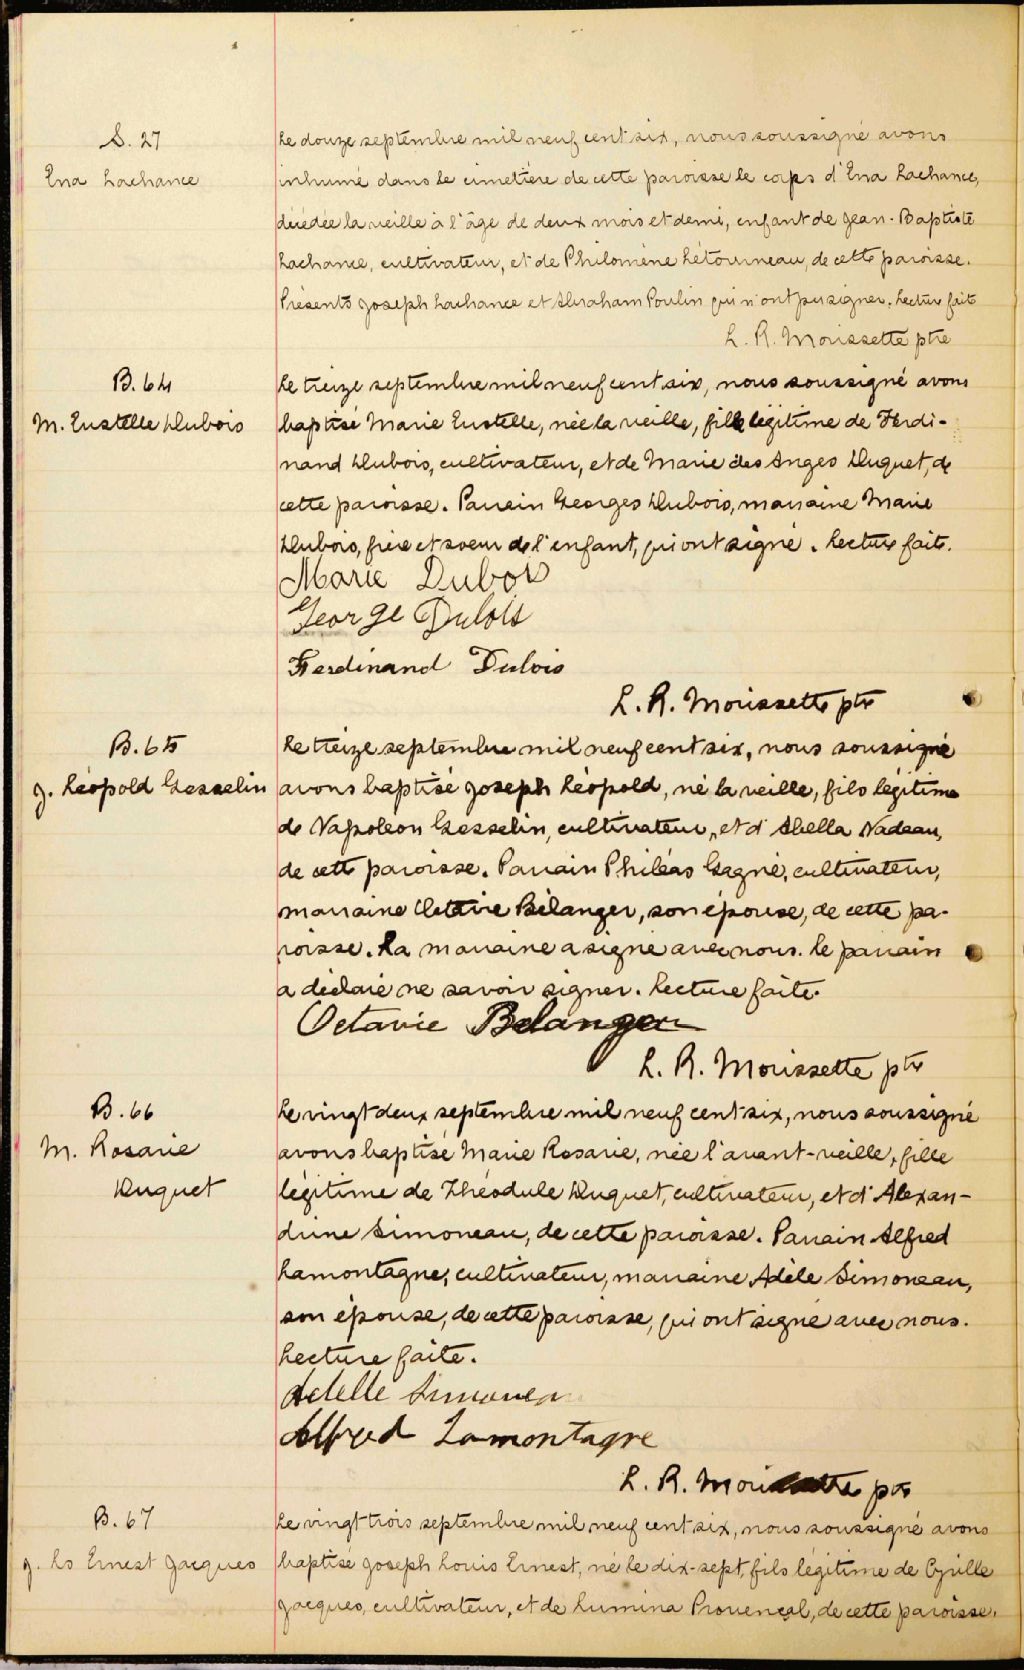 S. 27
Ena Lachance
Le douze septembre mil neuf cent six, nous soussigné avons
inhumé dans le cimetière de cette paroisse le corps d'Ena Lachance,
décédée la veille à l'âge de deux mois et demi, enfant de Jean-Baptiste
Lachance, cultivateur, et de Philomène Létourneau, de cette paroisse.
Présents Joseph Lachance et Abraham Poulin qui n'ont pu signer. Lecture faite
L. R. Morissette ptre
B. 64
M. Eustelle Dubois
Le treize septembre mil neuf cent six, nous soussigné avons
baptisé Marie Eustelle, née la veille, fille légitime de Ferdi-
nand Dubois, cultivateur, et de Marie des Anges Duquet, de
cette paroisse. Parrain Georges Dubois, marraine Marie
Dubois, frère et soeur de l'enfant, qui ont signé. Lecture faite.
Marie Dubois
George Dubois
Ferdinand Dubois
L. R. Morissette ptre
B. 65
J. Léopold Gosselin
Le treize septembre mil neuf cent six, nous soussigné
avons baptisé Joseph Léopold, né la veille, fils légitime
de Napoléon Gosselin, cultivateur, et d'Abella Nadeau,
de cette paroisse. Parrain Philéas Gagné, cultivateur,
marraine Octavie Bélanger, son épouse, de cette pa-
roisse. La marraine a signé avec nous. Le parrain
a déclaré ne savoir signer. Lecture faite.
Octavie Belanger
L. R. Morissette ptre
B. 66
M. Rosarie
Duquet
Le vingt-deux septembre mil neuf cent six, nous soussigné
avons baptisé Marie Rosarie, née l'avant-veille, fille
légitime de Théodule Duquet, cultivateur, et d'Alexan-
drine Simoneau, de cette paroisse. Parrain Alfred
Lamontagne, cultivateur, marraine Adèle Simoneau,
son épouse, de cette paroisse, qui ont signé avec nous.
Lecture faite.
Adelle Simonea
Alfred Lamontagne
L. R. Morissette ptre
B. 67
J. Ls Ernest Jacques
Le vingt trois septembre mil neuf cent six, nous soussigné avons
baptisé Joseph Louis Ernest, né le dix-sept, fils légitime de Cyrille
Jacques, cultivateur, et de Lumina Provençal, de cette paroisse.